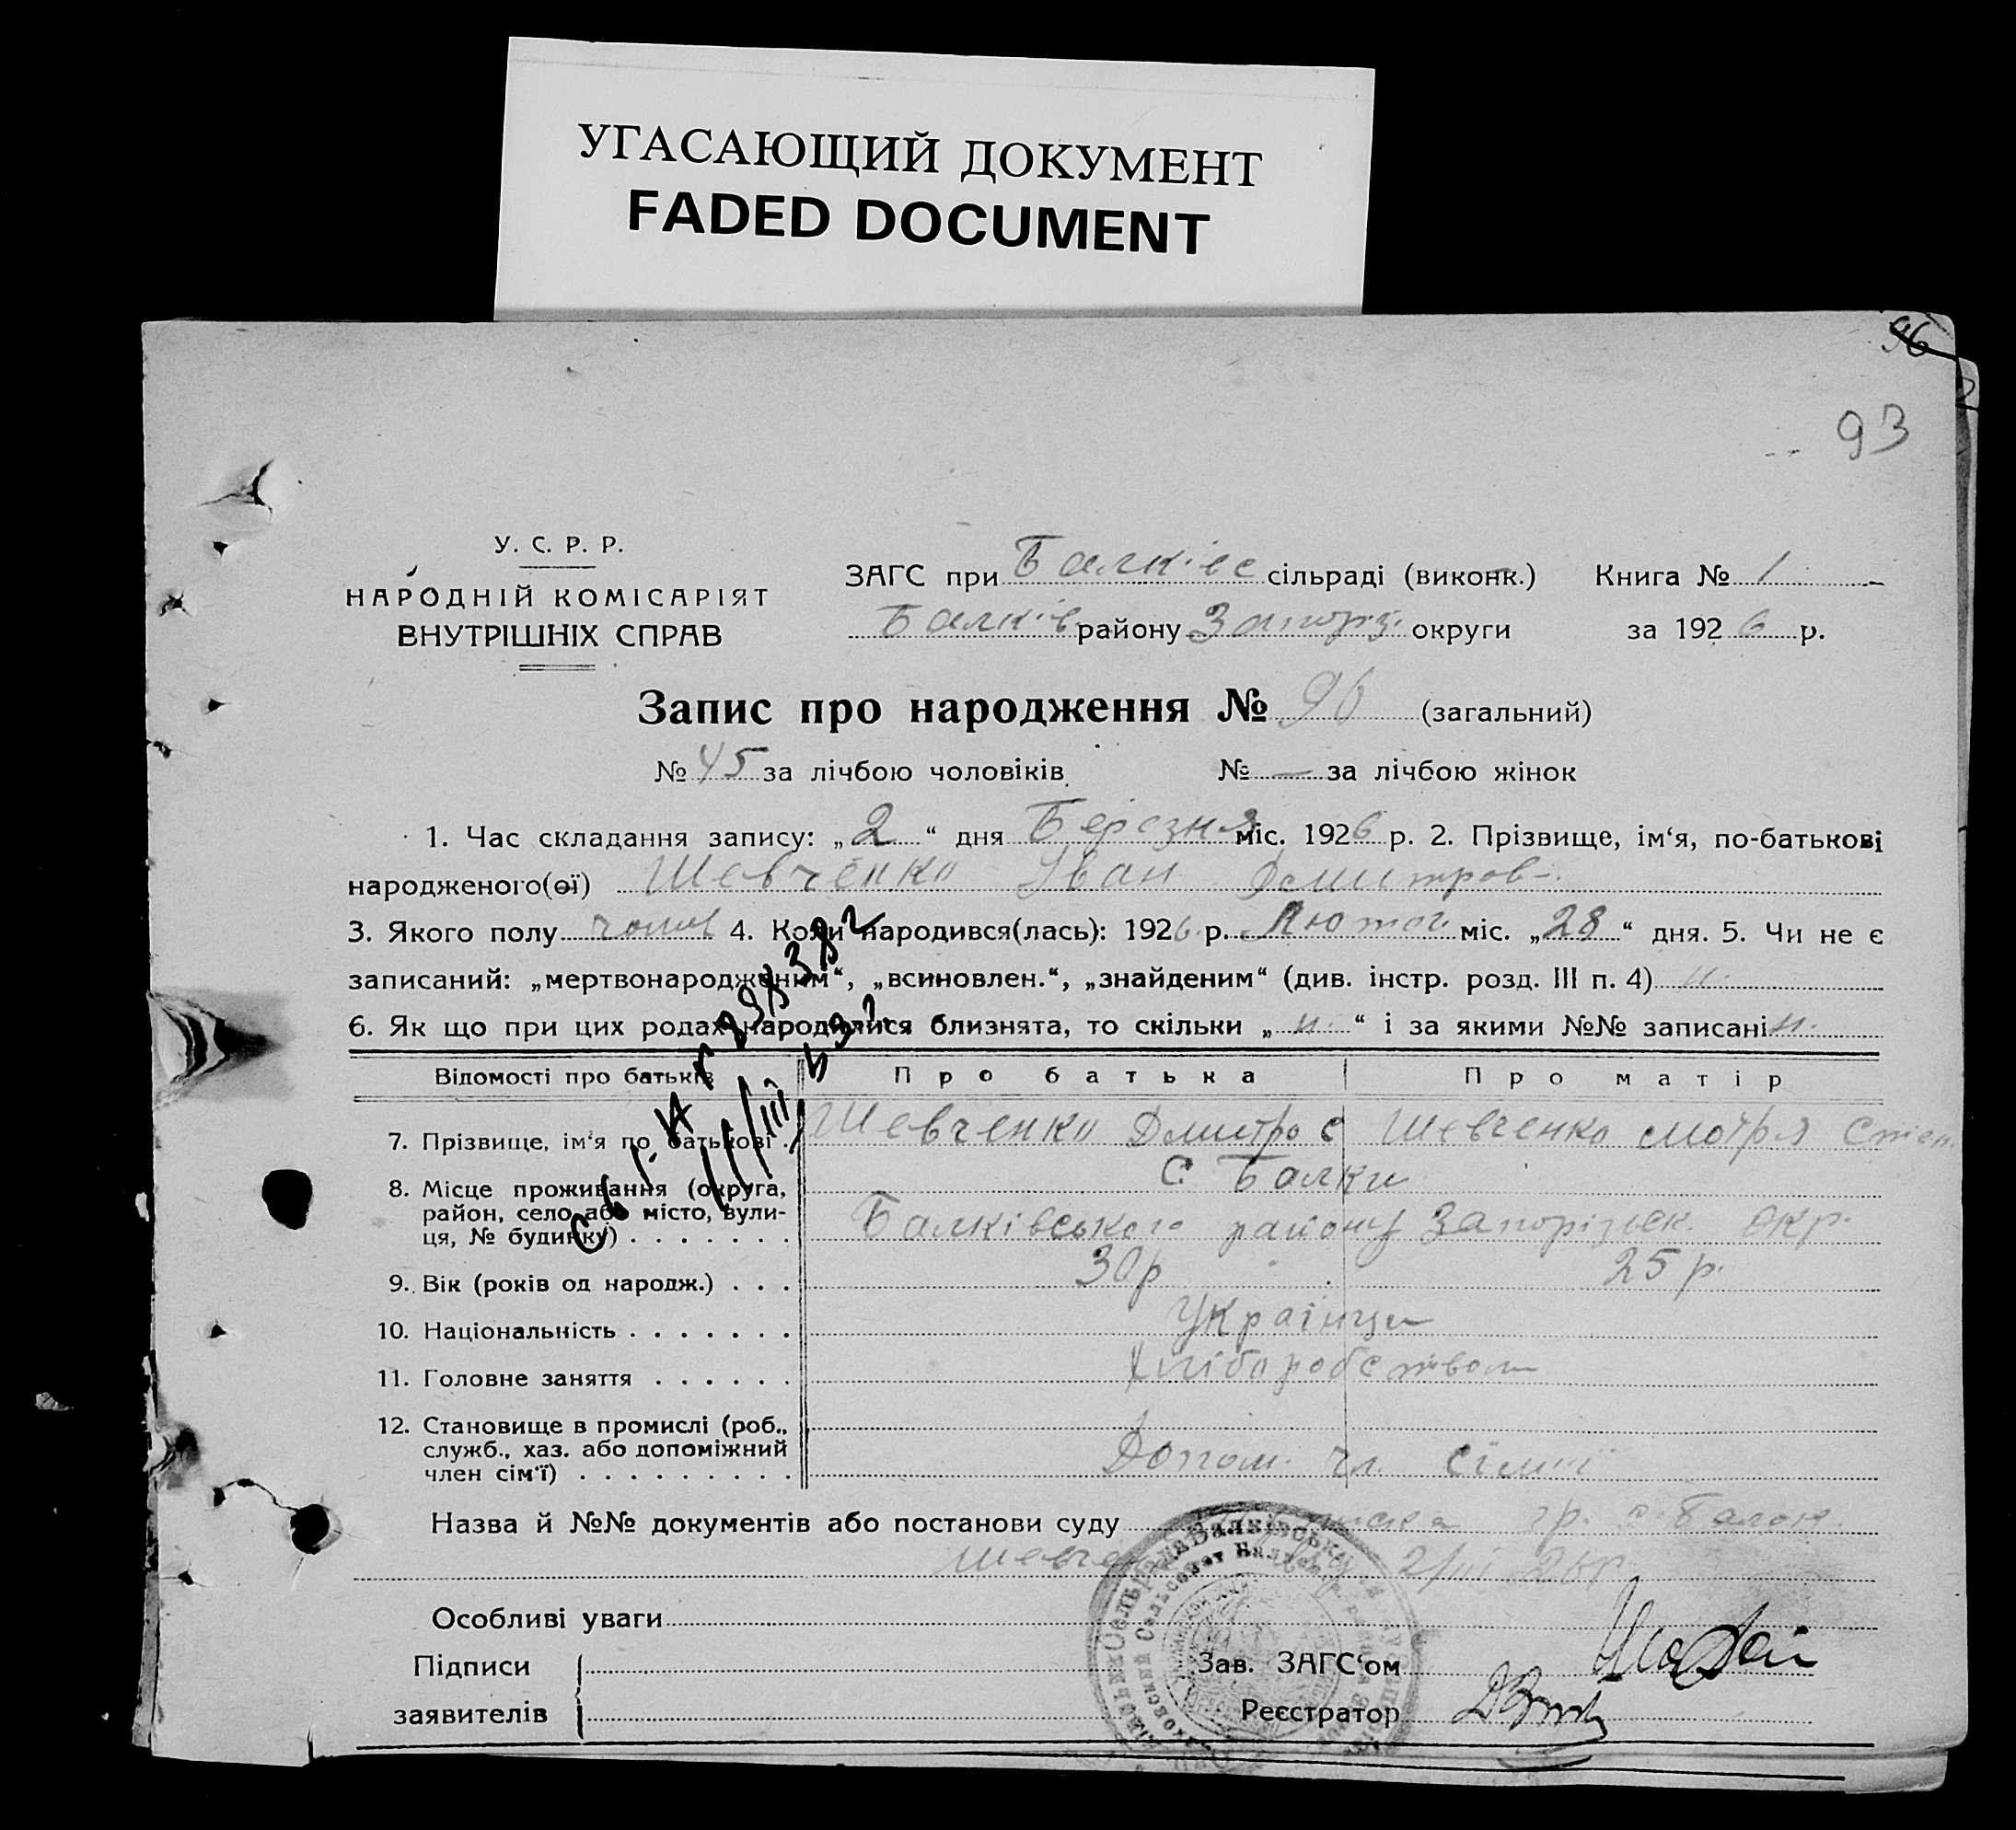 УГАСАЮЩИЙ ДОКУМЕНТ
FADED DOCUMENT
96
93
У. С. Р. Р.
НАРОДНІЙ КОМІСАРІЯТ
ВНУТРІШНІХ СПРАВ
ЗАГС при Балківс сільраді (виконк.) Книга № 1
Балків району Запоріз. округи за 1926 р.
Запис про народження № 96 (загальний)
№ 45 за лічбою чоловіків № — за лічбою жінок
1. Час складання запису: „2“ дня Березня міс. 1926 р. 2. Прізвище, ім‘я, по-батькові
народженого(ої) Шевченко Іван Дмитров.
3. Якого полу чолов 4. Коли народився(лась): 1926 р. Лютог. міс. „28“ дня. 5. Чи не є
записаний: „мертвонародженим“, „всиновлен.“, „знайденим“ (див. інстр. розд. III п. 4) н.
6. Як що при цих родах народилися близнята, то скільки „н.“ і за якими №№ записані н.
Відомості про батьків Про батька Про матір
7. Прізвище, ім‘я по батькові . Шевченко Дмитро С Шевченко Мотря Степ.
С. Балки
8. Місце проживання (округа,
район, село або місто, вули-
ця, № будинку) . . . . . . . Балківського району Запорізьк. окр.
9. Вік (років од народж.) . . . 30р 25 р.
10. Національність . . . . . . . Українци
11. Головне заняття . . . . . . Хліборобством
12. Становище в промислі (роб.,
служб., хаз. або допоміжний
член сім‘ї) . . . . . . . . . Допом. чл. сімї
Назва й №№ документів або постанови суду гр. с. Балок
2/III 26р
Особливі уваги
Підписи Зав. ЗАГС‘ом
заявителів Реєстратор